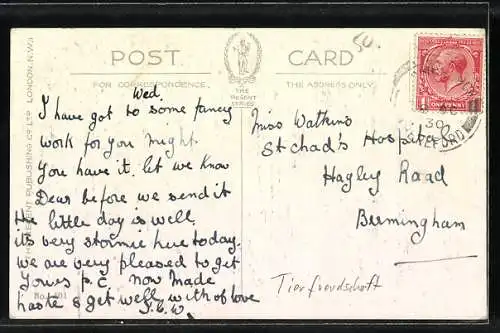 POST CARD
FOR CORRESPONDENCE.
THE ADDRESS ONLY.
THE
REGENT
SERIES
Wed.
I have got to some fancy
work for you might
You have it. let we know
Dear before we send it
the little day is well.
its very stormie here today.
we are very pleased to get
Yowrs p.c. now made
haste & get well with of love
J.C.W.
Miss Watkins
St chad's Hospital
Hagley Raad
Birmingham
Tierfreundschaft
THE REGENT PUBLISHING CO LTD LONDON. N.W.1
ONE PENNY
30